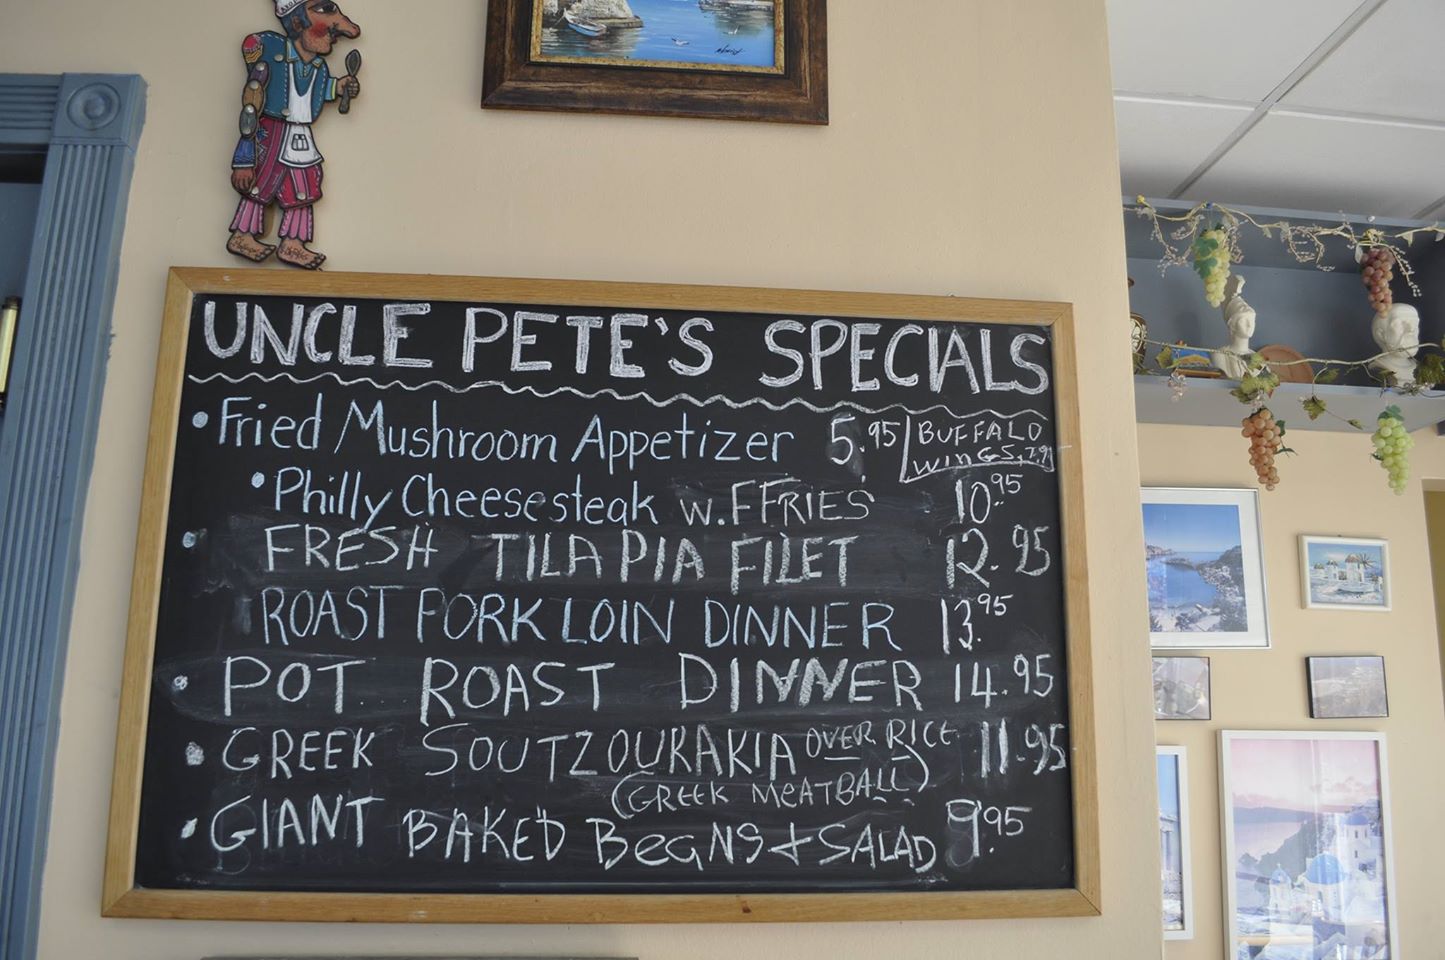 UNCLE PETE'S SPECIALS
• Fried Mushroom Appetizer 5.95
BUFFALO
WINGS, 7.95
• Philly Cheesesteak w. F FRIES 10.95
• FRESH TILAPIA FILET 12.95
ROAST PORK LOIN DINNER 13.95
• POT ROAST DINNER 14.95
• GREEK SOUTZOUKAKIA OVER RICE 11.95
(GREEK MEATBALL)
• GIANT BAKED BeaNS + SALAD 9.95